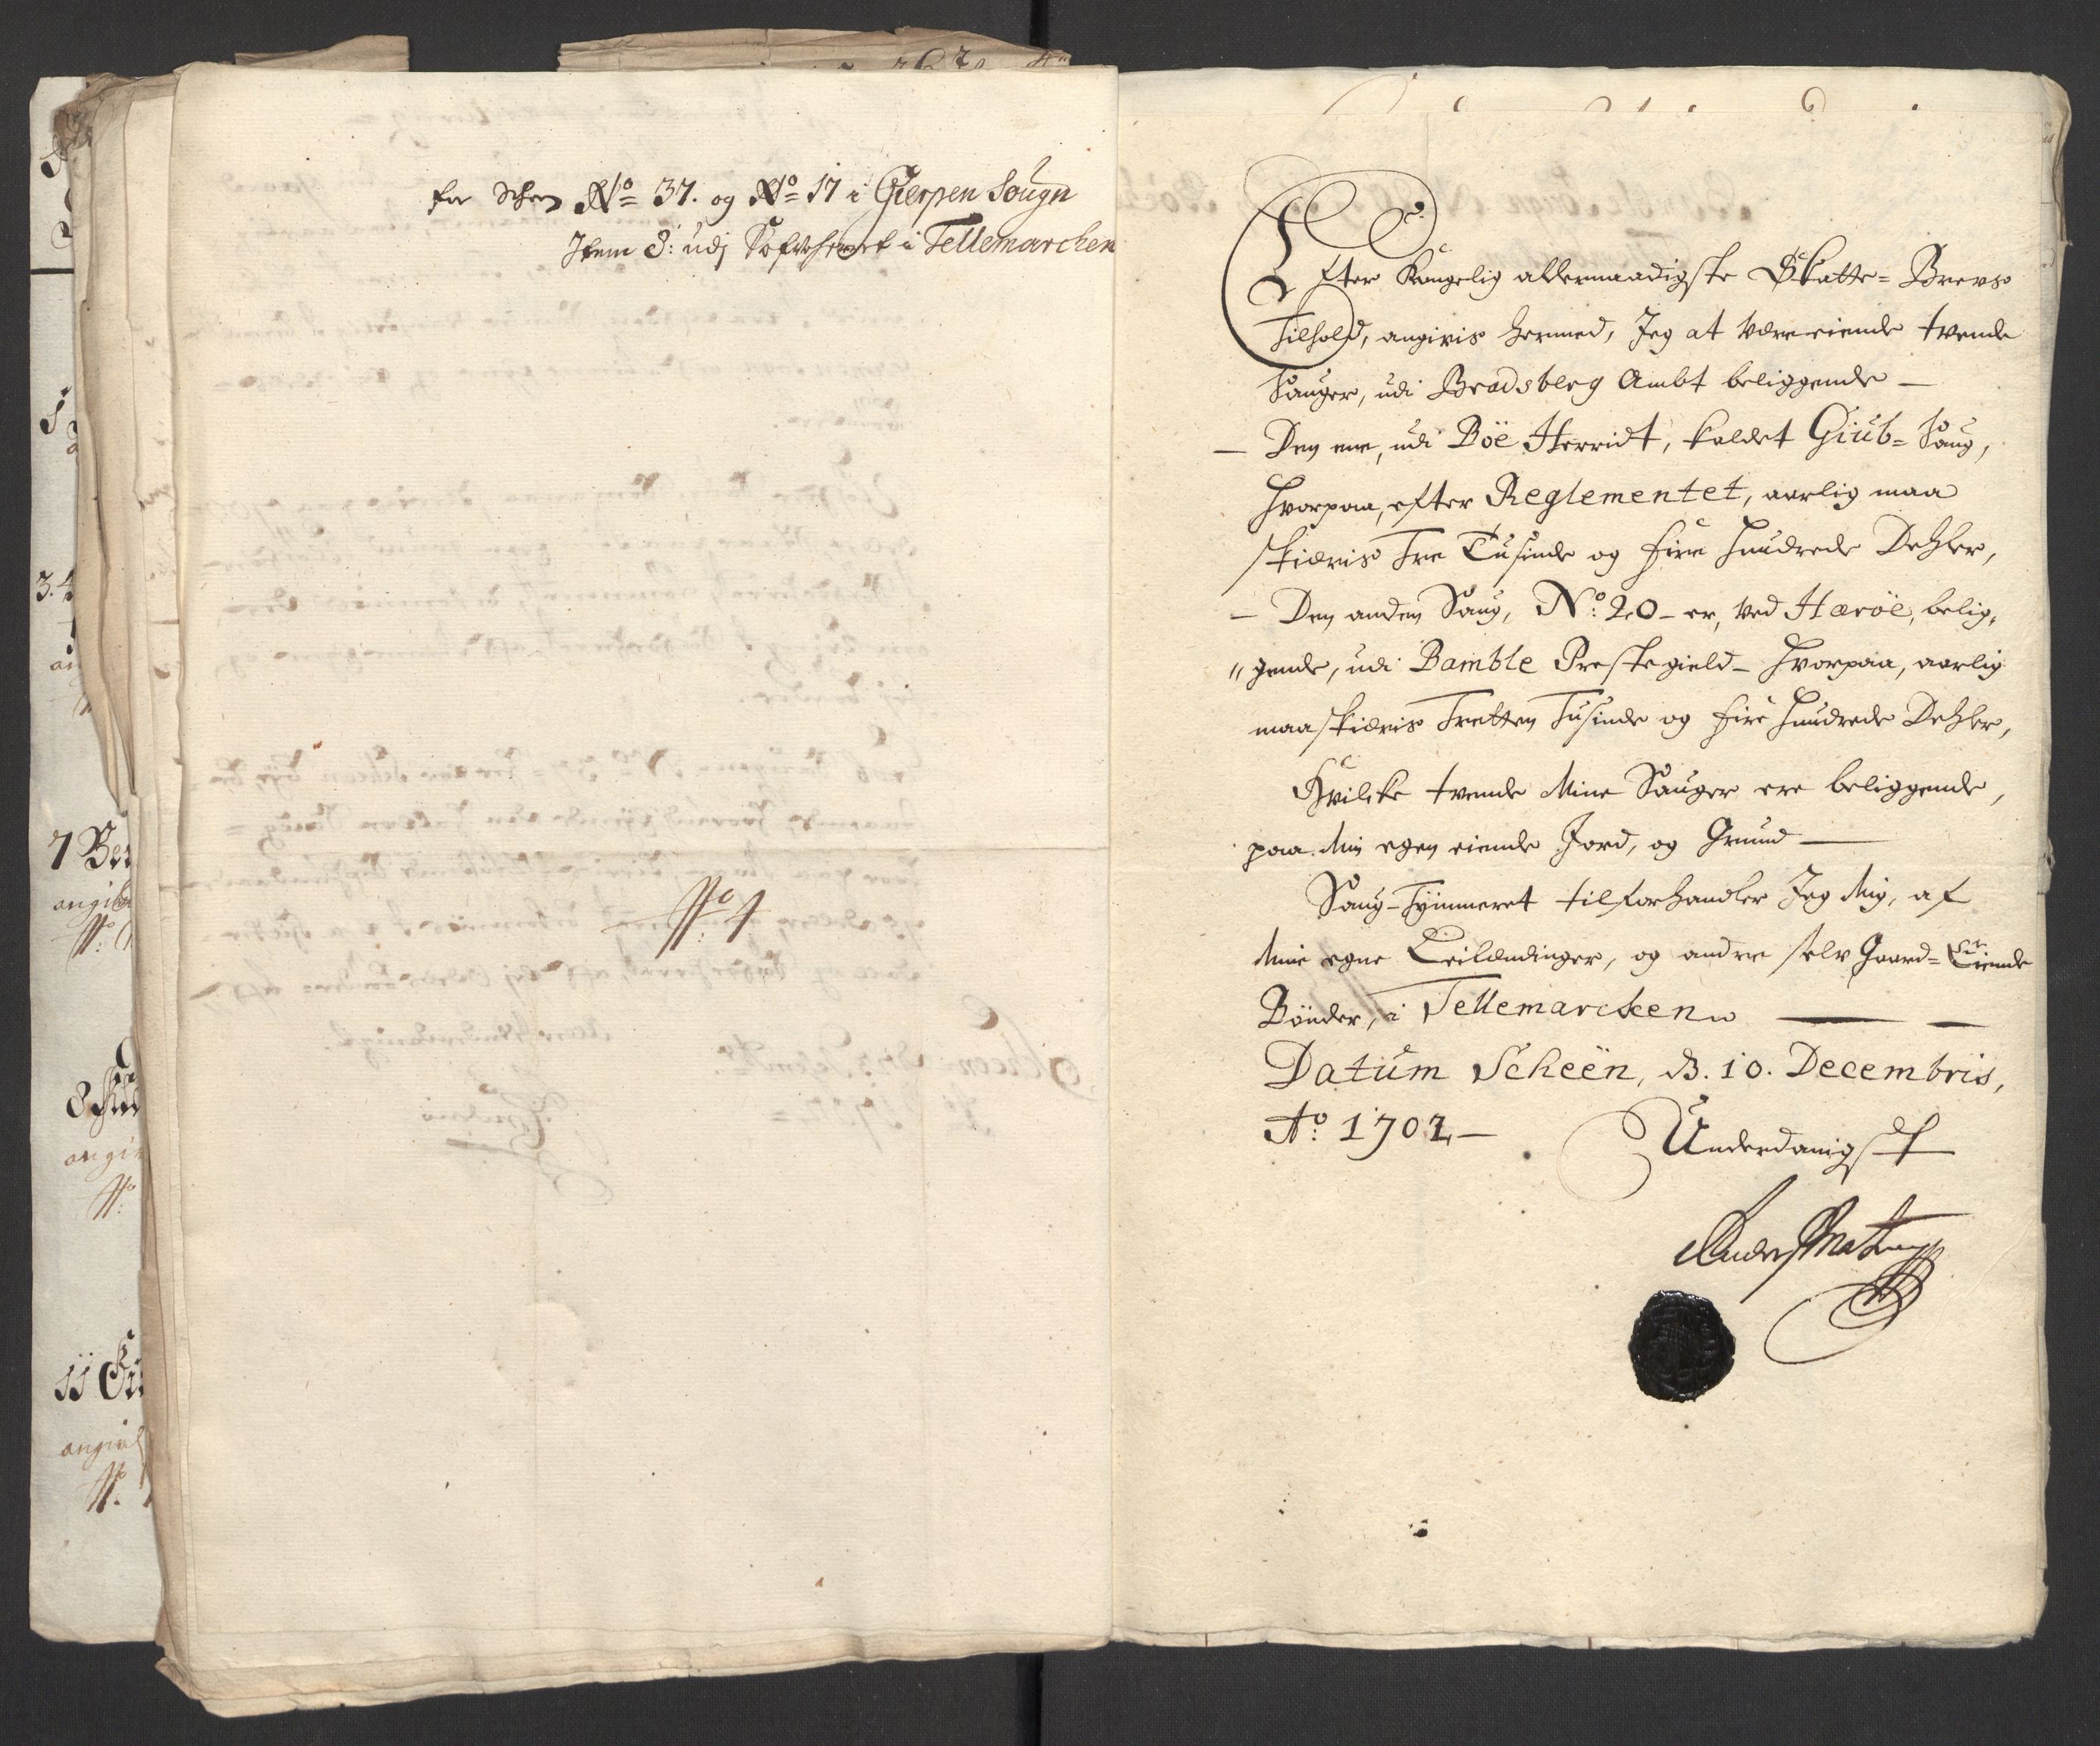 for Scheen No 37. og No 17 i Gierpen Sougn
Item 8: udj i Tellemarcken
No 4
Efter Kongelig allernaadigste Skatte= Brevs
Tilhold, angivis hermed, Jeg at være eiende tvende
Sauger, udi Bradsberg Ambt beliggende —
— Den ene, udi Böe Herridt, kaldet Giub= Saug,
Hvorpaa, efter Reglementet, aarlig maa
skiæris Tre Tusinde og fire hundrede Dehler,
— Den anden Saug, No: 20 – er, ved Hæröe, belig,
„gende, udi Bamble Prestegield – Hvorpaa, aarlig
maa skiæris Tretten Tusinde og fire hundrede Dehler,
Hvilcke tvende Mine Sauger ere beliggende,
paa Min egen eiende Jord, og Grund —
Saug-Tÿmmeret tilforhandler Jeg Mig, af
Mine egne Leilændinger, og andre selv Gaard= Eiende
Bönder, i Tellemarcken —
Datum Scheën, D. 10. Decembris,
Ao: 1702 —
Underdanigst
Anders
7
angi
3.
8
angi
11
angi